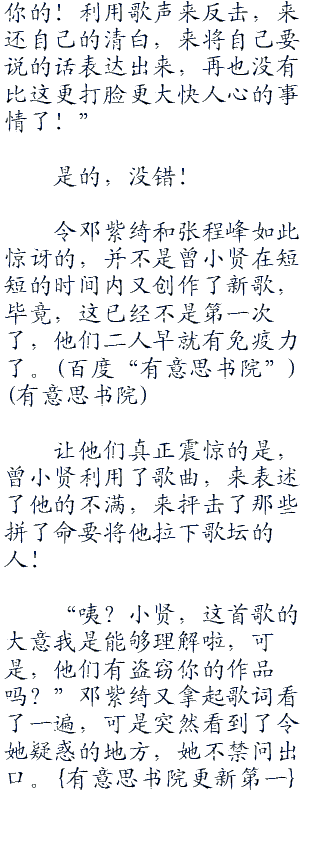 你的！利用歌声来反击，来
还自己的清白，来将自己要
说的话表达出来，再也没有
比这更打脸更大快人心的事
情了！”
是的，没错！
令邓紫绮和张程峰如此
惊讶的，并不是曾小贤在短
短的时间内又创作了新歌，
毕竟，这已经不是第一次
了，他们二人早就有免疫力
了。(百度“有意思书院”)
(有意思书院)
让他们真正震惊的是，
曾小贤利用了歌曲，来表述
了他的不满，来抨击了那些
拼了命要将他拉下歌坛的
人！
“咦？小贤，这首歌的
大意我是能够理解啦，可
是，他们有盗窃你的作品
吗？”邓紫绮又拿起歌词看
了一遍，可是突然看到了令
她疑惑的地方，她不禁问出
口。{有意思书院更新第一}